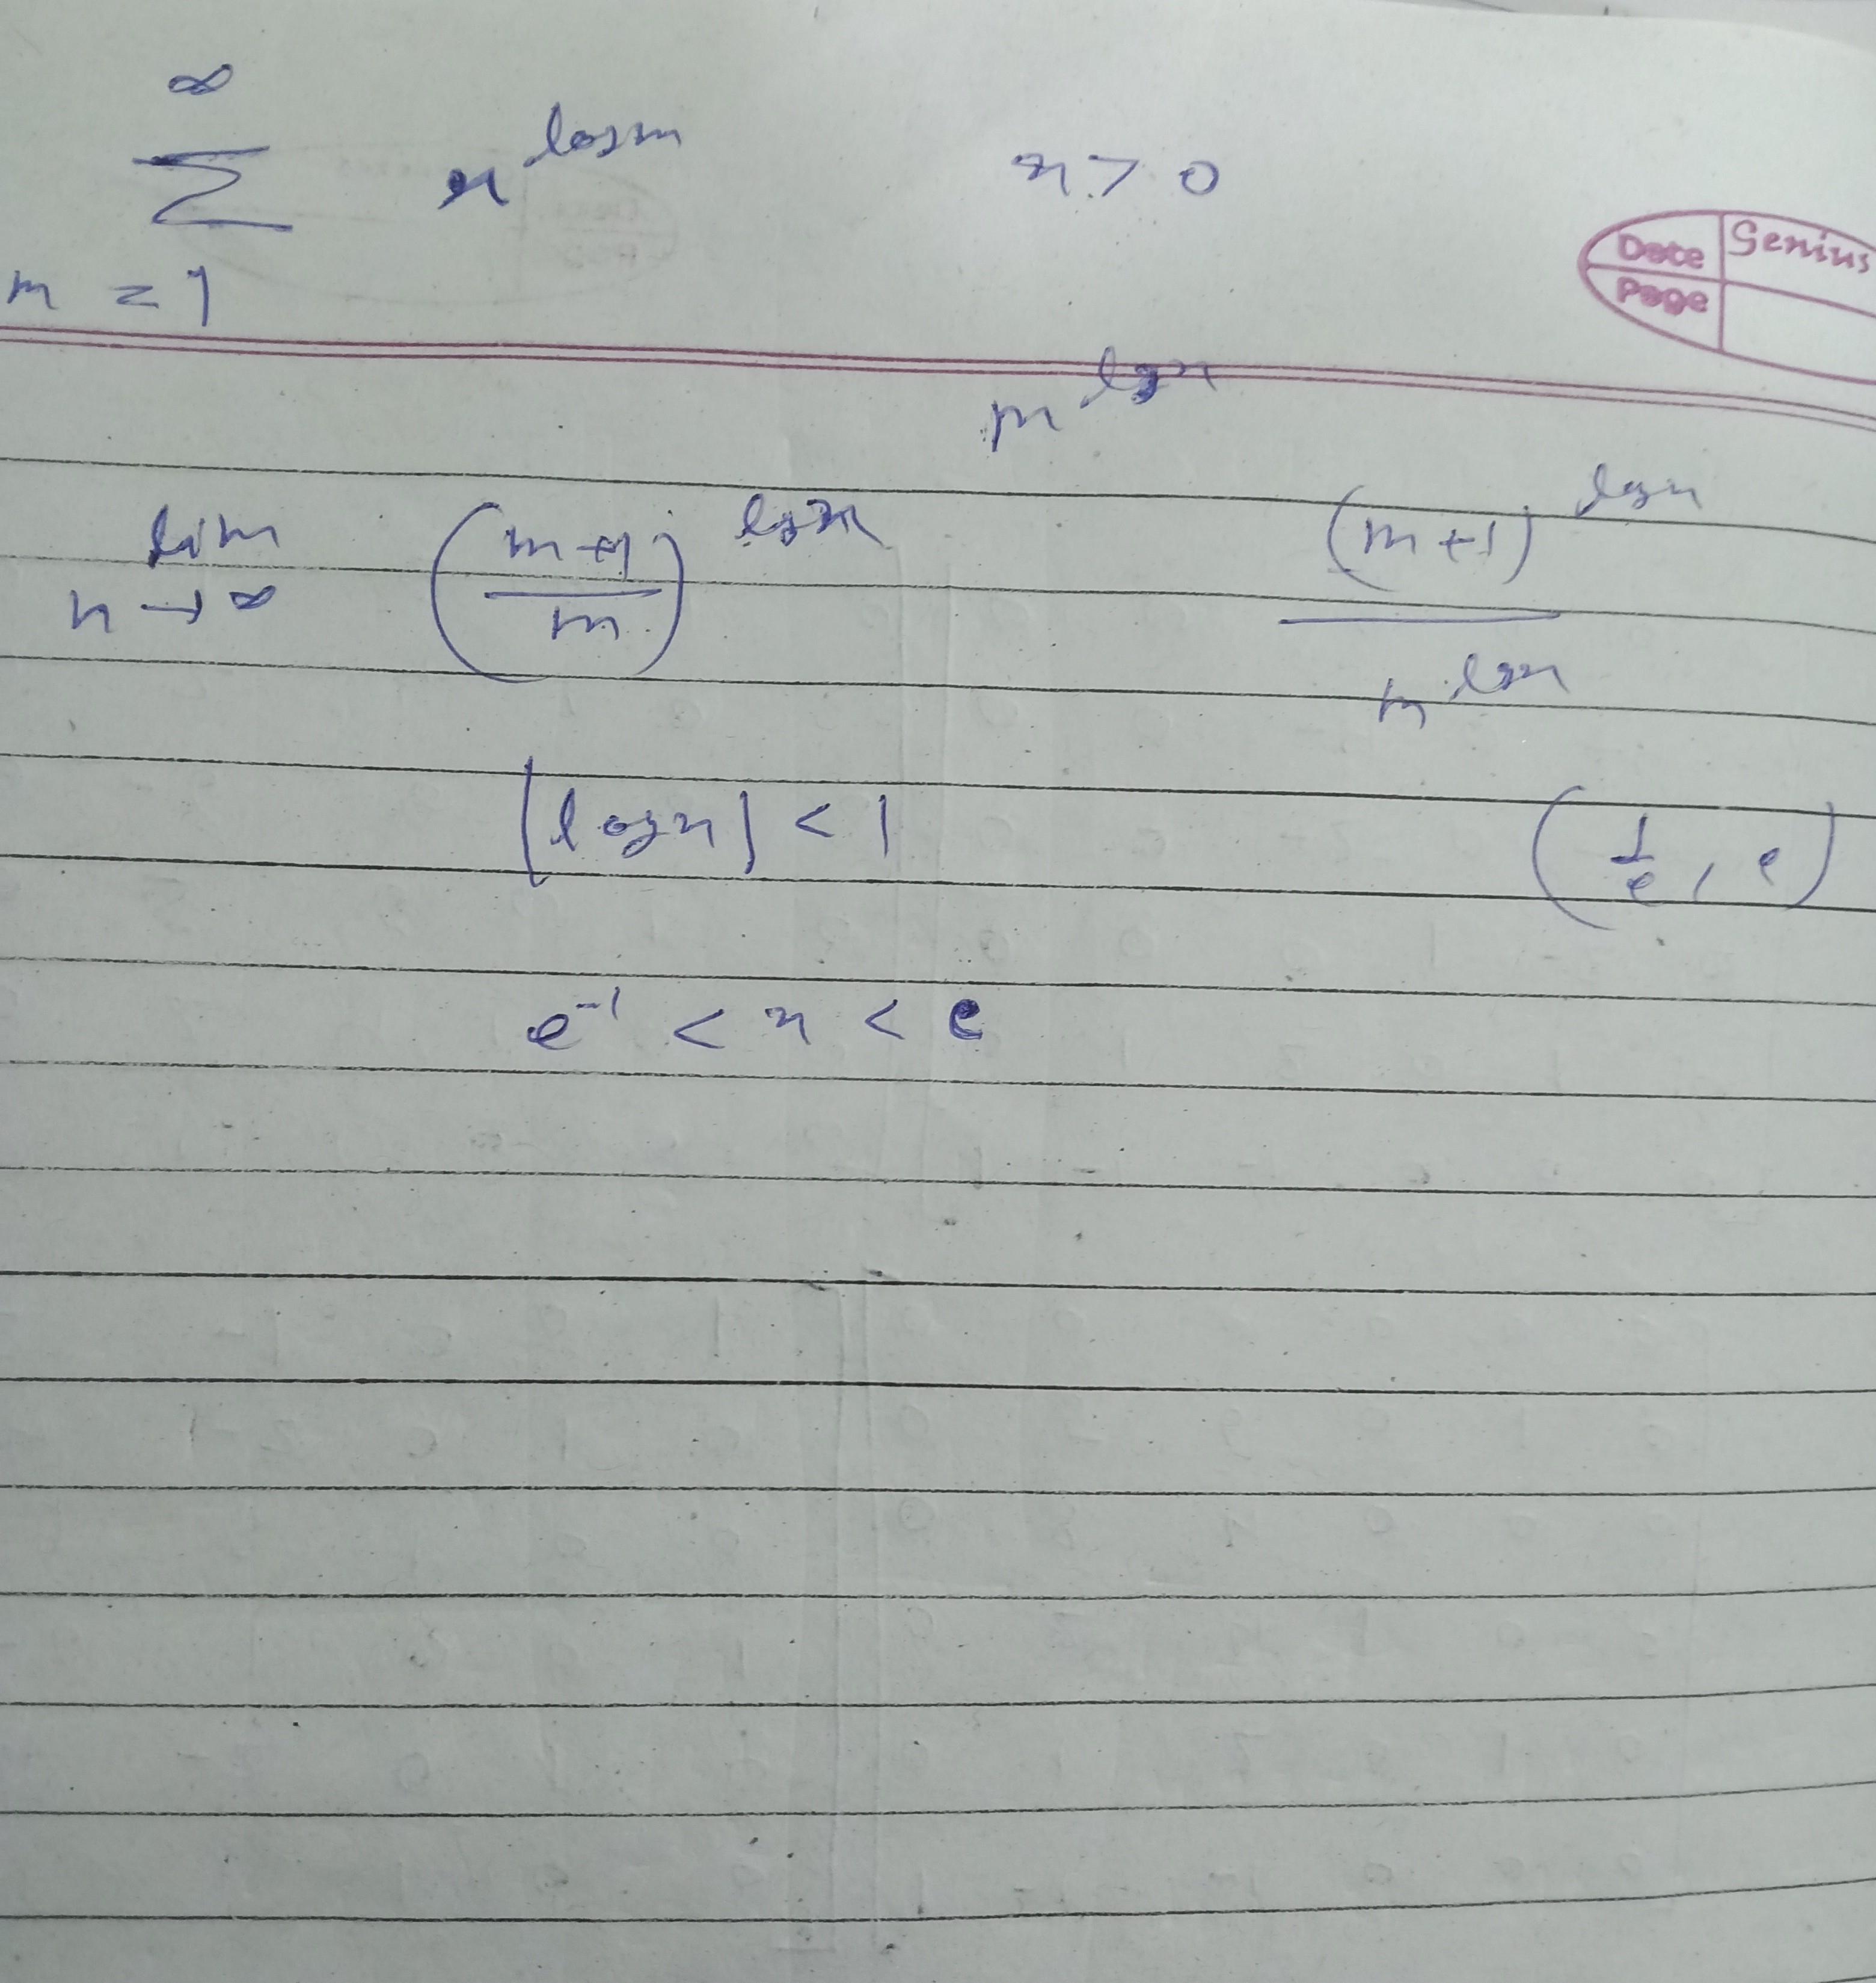 ∞
∑ x^{log m} x > 0
m = 1
Date Genius
Page
m^{log x}
lim_{n → ∞} ((m+1)/m)^{log x} (m+1)^{log x} / m^{log x}
|log x| < 1 (1/e, e)
e^{-1} < x < e